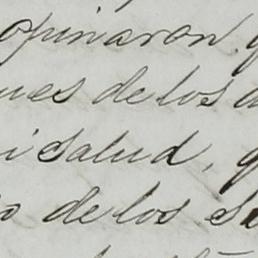 opinaron, q
ues de los d
i salud, q
o de los su